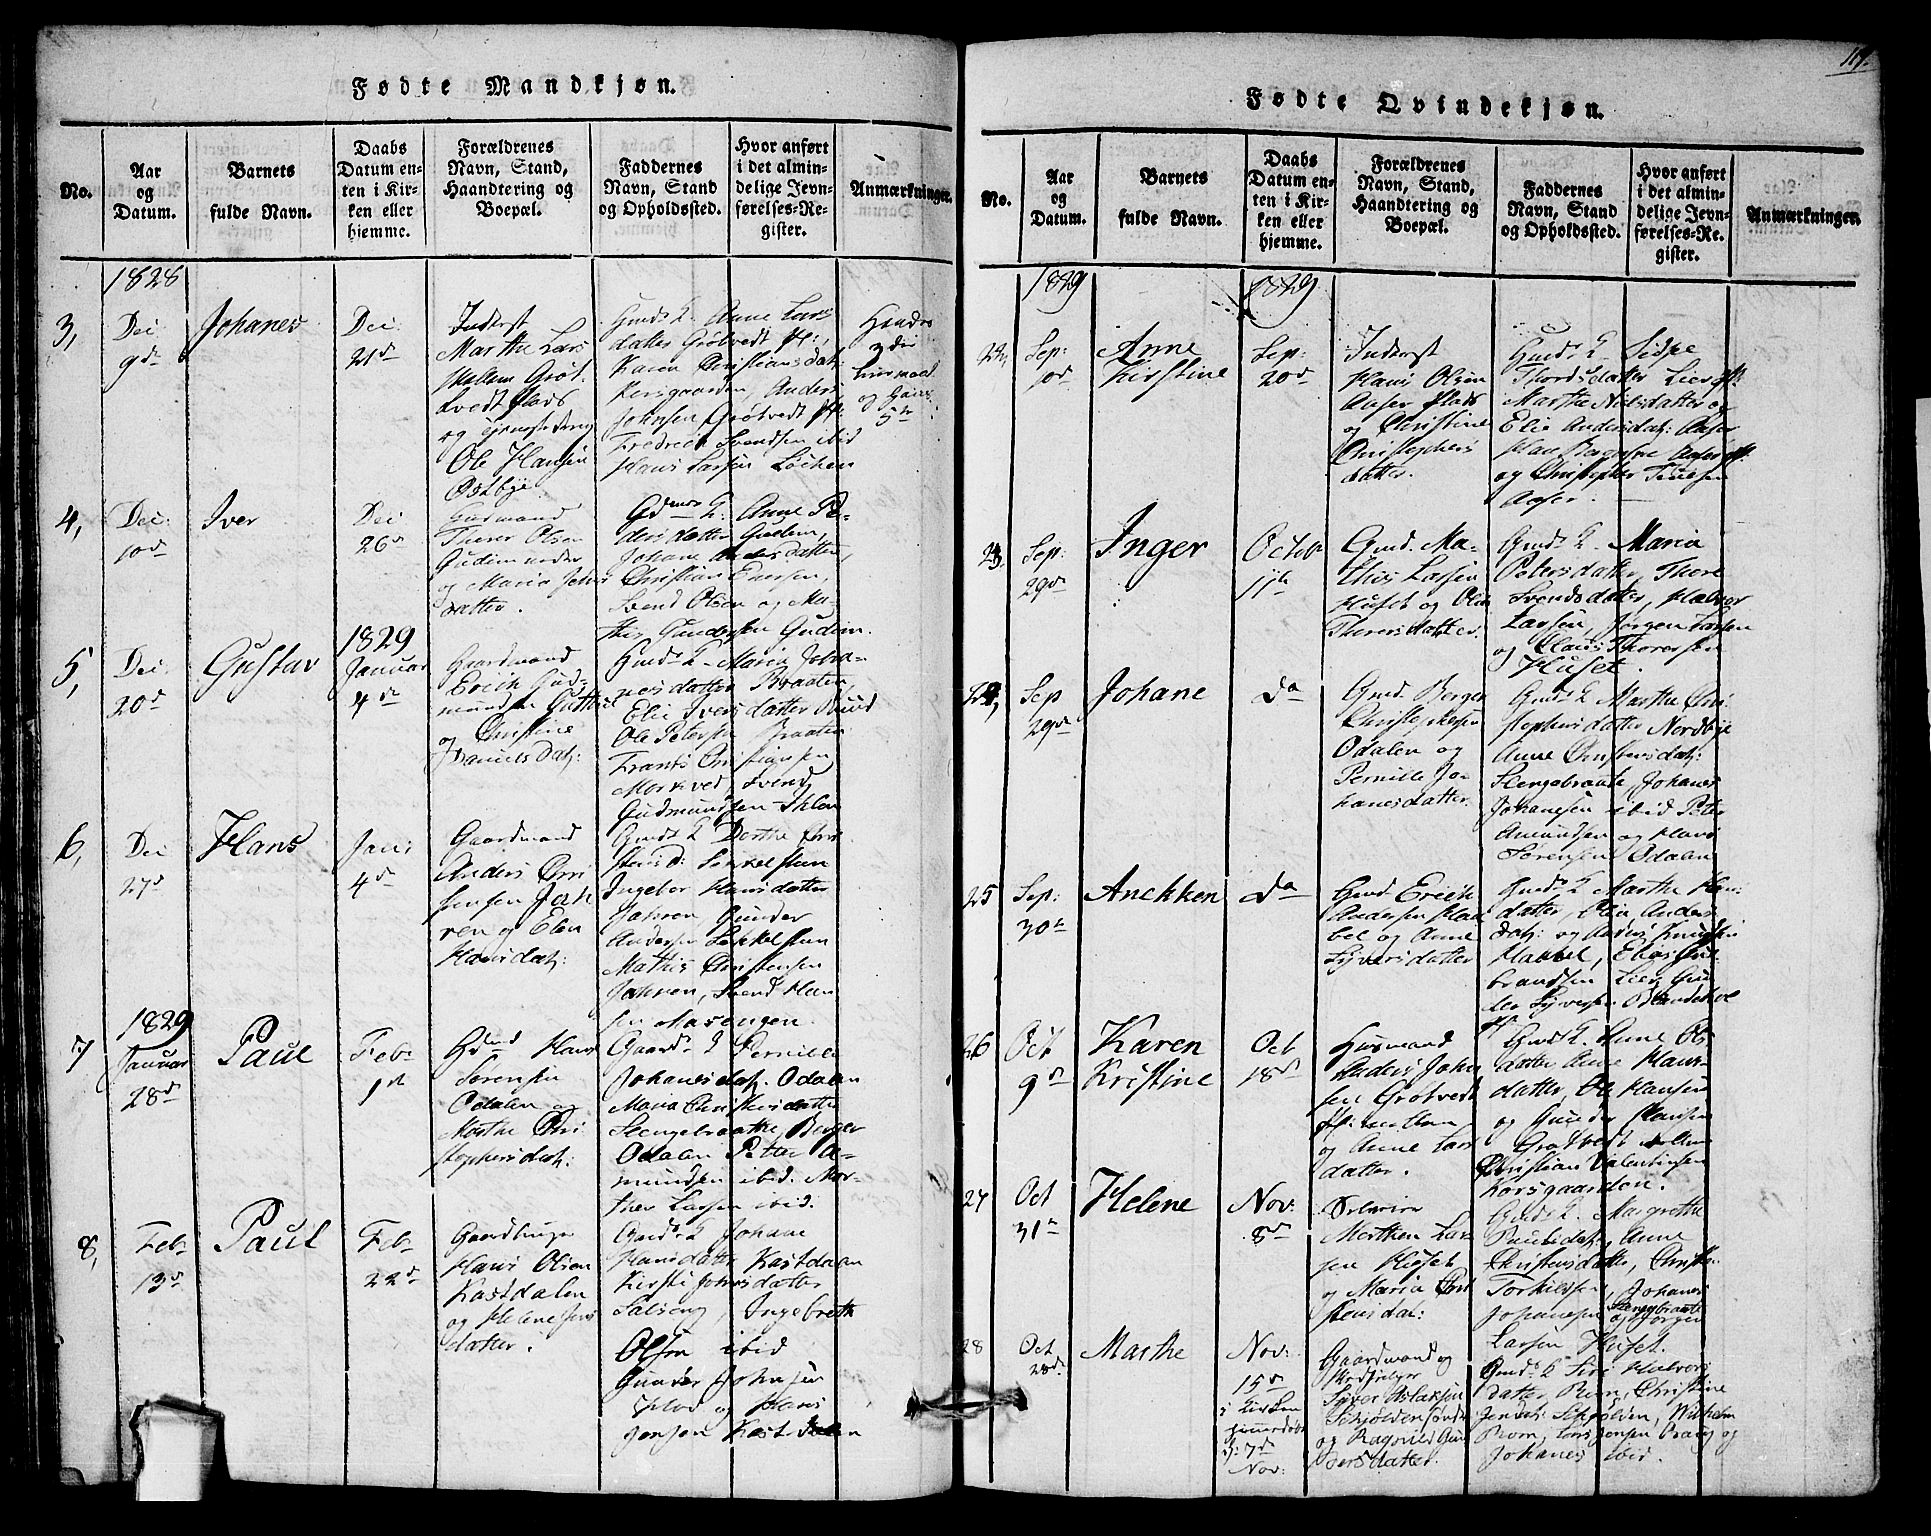 117.
Fødte Mandkjøn.
No.
Aar
og
Datum.
Barnets
fulde Navn.
Daabs
Datum en-
ten i Kir-
ken eller
hjemme.
Forældrenes
Navn, Stand,
Haandtering og
Boepæl.
Faddernes
Navn, Stand
og Opholdssted.
Hvor anført
i det almin-
delige Jevn-
førelses-Re-
gister.
Anmærkninger.
1828
3,
Dec:
9de
Johanes
Dec:
21de
Inderst
Marthe Lars
Grøt
vedt Plads
og
Ole Hansen
Østbye.
Gmds K Anne Lars
datter Grøtvedt Pl:,
Karen Christiansdat:
Korsgaarden, Anders
Johnsen Grøtvedt Pl:
Fredrik Svendsen ibid
Hans Larsen Løchen
Hendes
3die
Leiermaal
og Hans
5te
4,
Dec:
10de
Iver
Dec
26de
Gudmand
Thorer Olsen
Gudim nedre
og Maria Peders
datter.
Gdmds K: Anne Pe-
dersdatter Gudim,
Johane Andersdatter,
Christian Enersen,
Svend Olsen og Ma-
this Gundersen Gudim.
5,
Dec:
20de
Gustav
1829
Januar
4de
Gaardmand
Erich Gud-
mundsen
og Christine
Danielsdat:
Gmds K- Maria Joha-
nesdatter Braaten
Elie Iversdatter Ruud
Ole Petersen Braaten
Frants Christiansen
Morkved Svend
Gudmundsen
6,
Dec
27de
Hans
Jan:
4de
Gaardmand
Anders Chri
stensen Jah
ren og Elen
Hansdat:
Gmds K Dorthe Chri
stensd: Sekkelsten
Ingebor Hansdatter
Jahren, Gunder
Andersen Sekkelsten
Mathis Christensen
Jahren, Svend Han
sen Masengen.
1829
7
Januar
28de
Paul
Feb:
1st
Gdmd Hans
Sørensen
Odalen og
Marthe Chri
stophersdat:
Gaards K Pernille
Johanesdat: Odalen
Maria Christensdatter
Slengebraatte, Berger
Odalen Petter A-
mundsen ibid. Mor-
then Larsen ibid.
8,
Feb:
13de
Paul
Feb:
22de
Gaardbruger
Hans Olsen
Kastdalen
og Helene Jens
datter.
Gaards K Johane
Hansdatter Kastdalen
Kirsti Johnsdatter
Salseng, Ingebreth
Olsen ibid
Gunder Johnsen
og Hans
Jensen Kastdalen
Fødte Qvindekjøn.
No.
Aar
og
Datum.
Barnets
fulde Navn.
Daabs
Datum en-
ten i Kir-
ken eller
hjemme.
Forældrenes
Navn, Stand,
Haandtering og
Boepæl.
Faddernes
Navn, Stand
og Opholdssted.
Hvor anført
i det almin-
delige Jevn-
førelses-Re-
gister.
Anmærkningen
1829
1829
22,
Sep:
10de
Anne
Kirstine
Sep:
20de
Inderst
Hans Olsen
Aaser Plads
og Christine
Christophers
datter.
Gmds K Sidse
Thordsdatter Lier Pl:
Marthe Nielsdatter og
Elie Andersdat: Aaser
og Christopher
Aaser.
23,
Sep:
29de
Inger
Octob
11te
Gmd. Ma-
this Larsen
Huset og Olia
Thorersdatter
Gmds K Maria
Petersdatter, Thore
Svendsdatter, Halvor
Larsen, Jørgen Larsen
og Claus Thoresen
Huset.
24,
Sep
29de
Johane
Da
Gmd. Berger
Christophersen
Odalen og
Pernille Jo
hanesdatter
Gmds K Marthe Chri
stophersdatter Nordbye
Anne Christensdatter
Slengebraate, Johanes
Johanesen ibid Peter
Amundsen og Hans
Sørensen Odalen
25
Sep:
30te
Anekken
Da
Gmd Erich
Andersen Hab
bel og Anne
Syversdatter
Gmds K Marthe Han:
datter, Olia Anders
dat: og Anders Knudsen
Habbel, Elias Gul
brandsen Lier Gun
der Syversen
26
Oct
9de
Karen
Kristine
Oct
18de
Husmand
Anders John
sen Grøtvedt
Pl: mellem
og Anne Lars
datter.
Gmds K. Anne Ols
datter Anne Hans
datter, Ole Hansen
og Gunder Hansen
Grøtvedt
Christian Valentinsen
Korsgaarden.
27
Oct
31te
Helene
Nov:
8de
Morthen Lar
sen Huset
og Maria Chri
stensdat:
Gmds K. Margrethe
Paulsdat:, Anne
Christensdatter, Christen
Torkilssen, Johanes
Johanesen Slengebraate
og Jørgen
Larsen Huset.
28
Oct
28de
Marthe
Nov:
15de
i Kirken
hjemmedøbt
d: 7de
Nov:
Gaardmand og
Medhjelper
Syver Aslaksen
Schjølden søndr
og Ragnild Gun
dersdatter.
Gmds K Siri Halvors
datter Rom, Christine
Jensdt: Schjølden, Wilhelm
Rom, Lars Jensen Prang og
Johanes ibid.